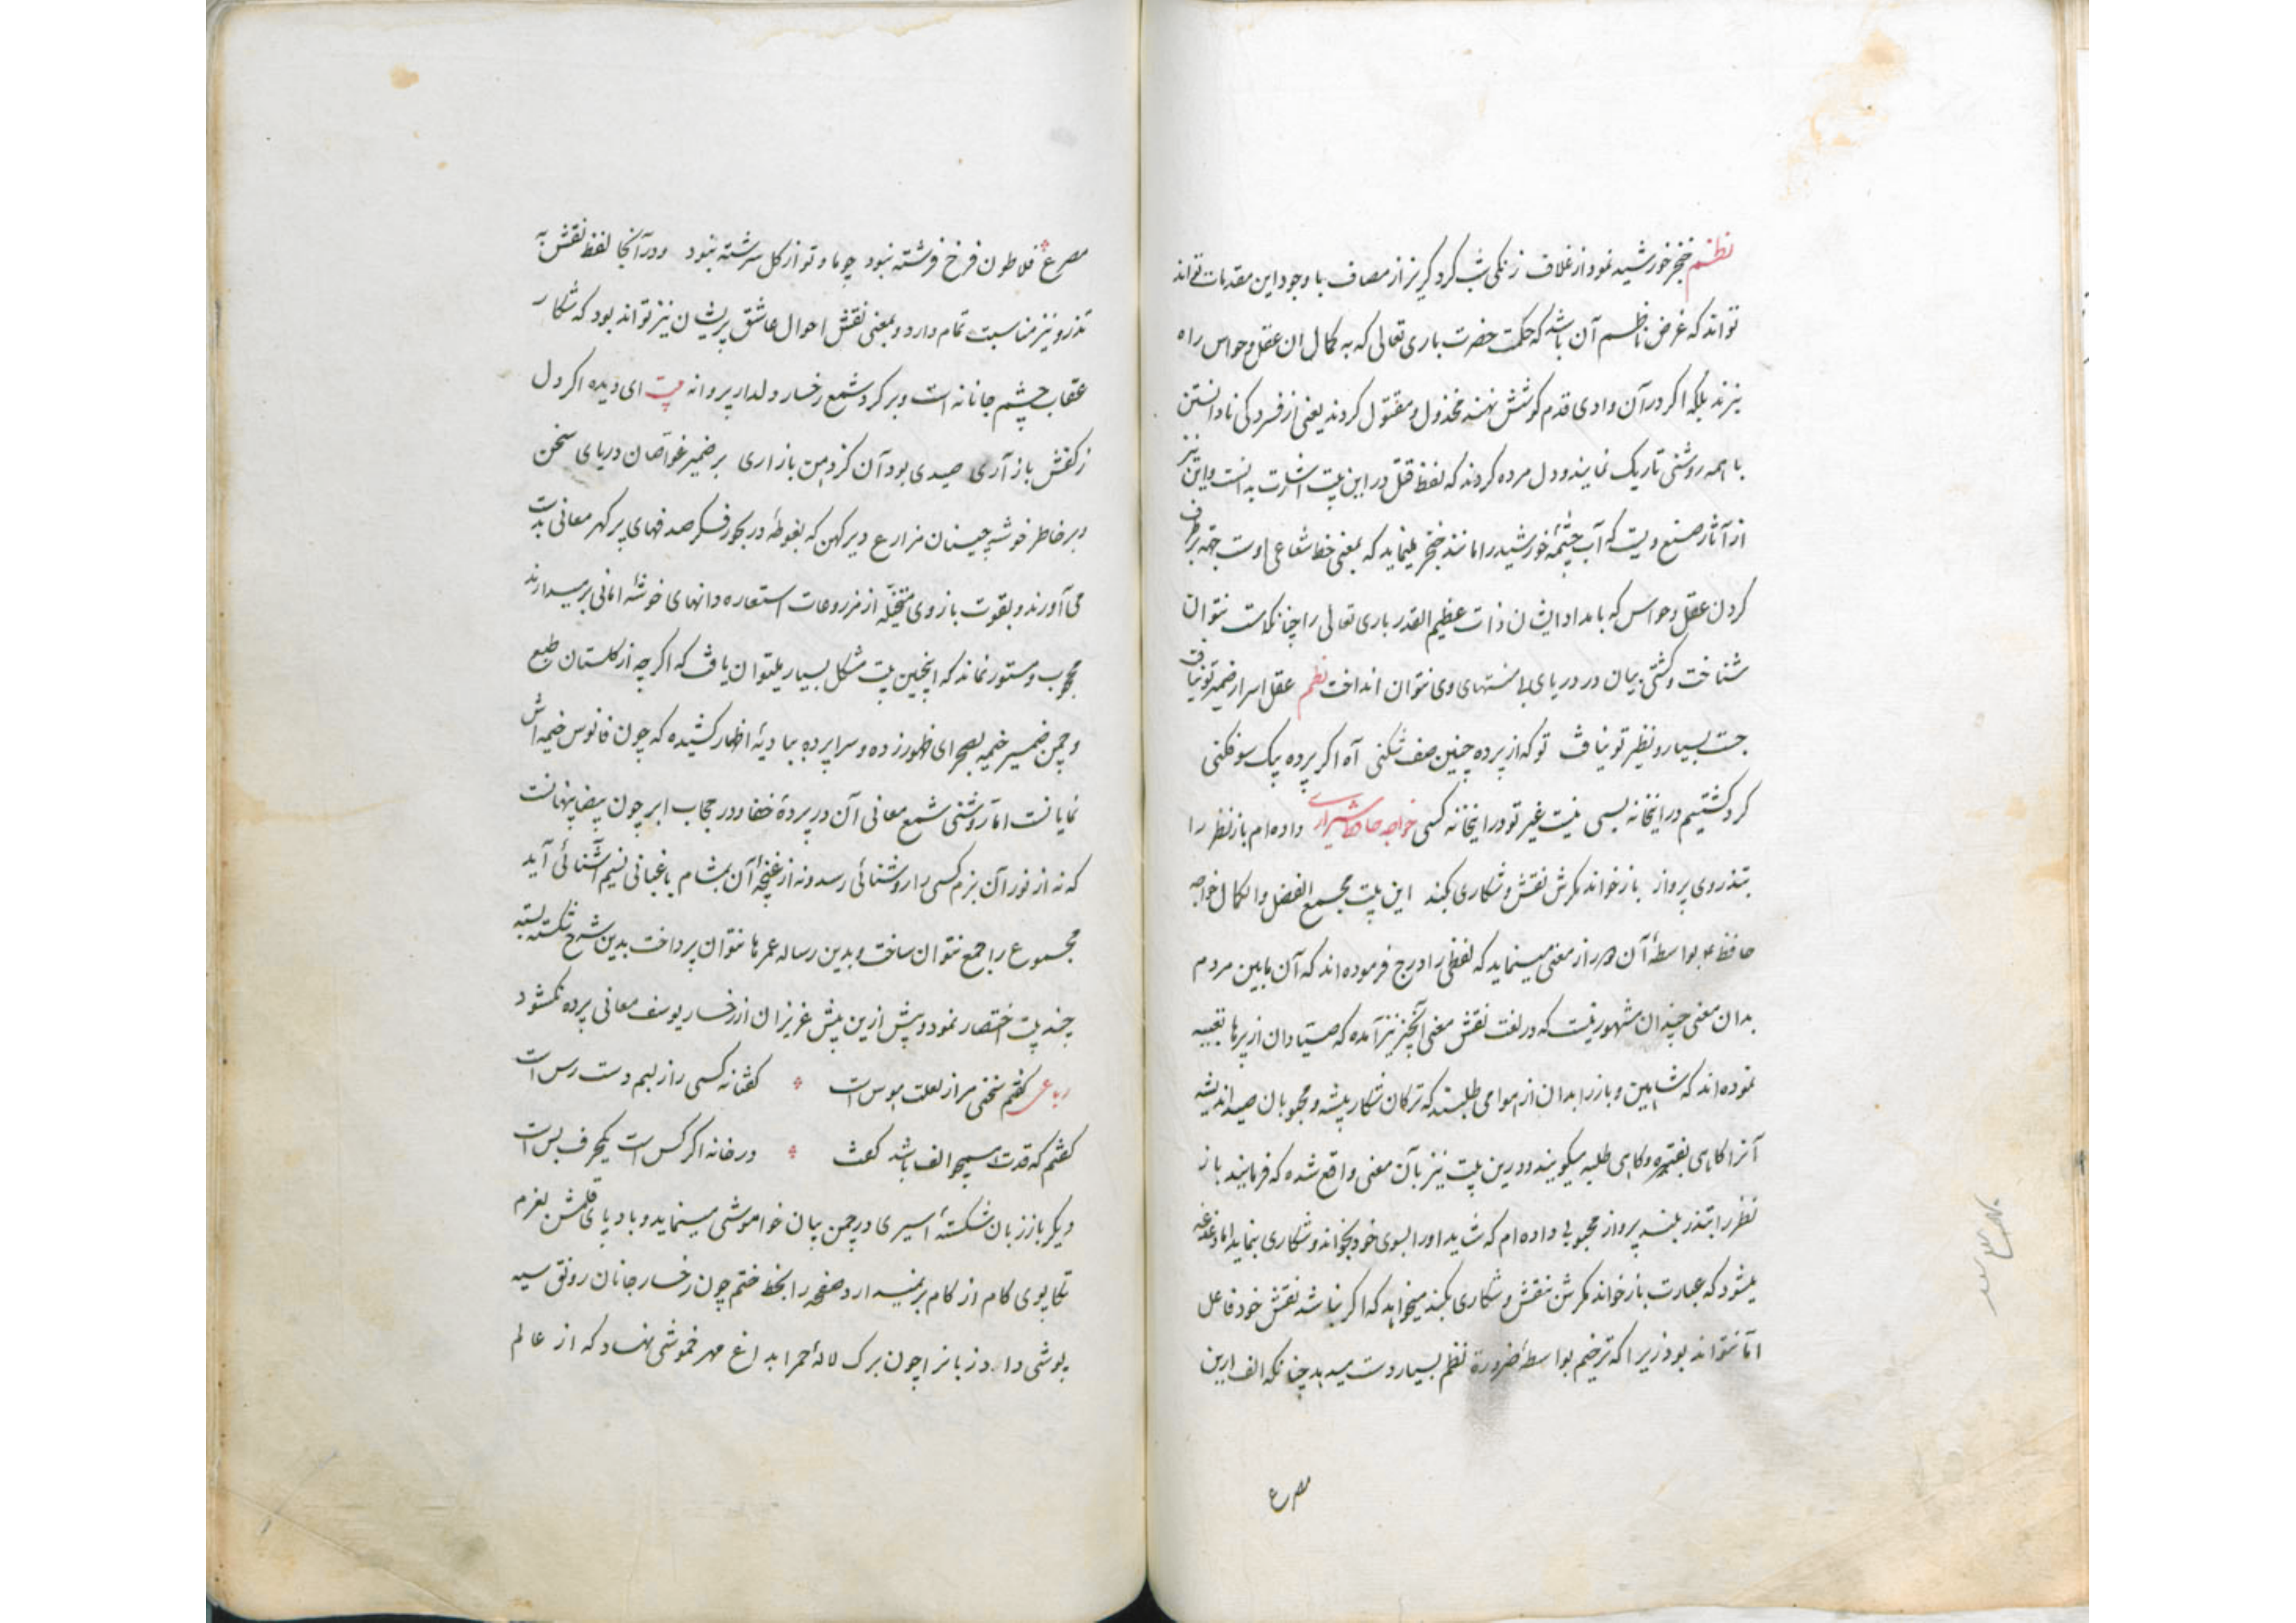 نظم خنجر خورشید نمود از غلاف زنکی شب کرد کریز از مصاف با وجود این مقدمات تواند
تواند که غرض ناظم آن باشد که حکمت حضرت باری تعالی که به کمال ان عقل و حواس راه
نبرند بلکه اکر در آن وادی قدم کوشش نهند مخذول و مقتول کردند یعنی از فسردکی نادانستن
با همه روشنی تاریک نمایند و دل مرده کردند که لفظ قتل در این بیت اشارت بدانست و این نیز
از آثار صنع ویست که آب چشمهٔ خورشید را مانند خنجر مینماید که بمعنی خط شعاعی اوست جهة برطرف
کردن عقل و حواس که بامداد ایشان ذات عظیم القدر باری تعالی را چنانکه است نتوان
شناخت و کشتی بیان در دریای بی منتهای وی نتوان انداخت نظم عقل اسرار ضمیر تو نیافت
جست بسیار و نظیر تو نیافت تو که از پرده چنین صف شکنی آه اکر پرده بیک سو فکنی
کرد کشتیم درانخانه بسی نیست غیر تو درانخانه کسی خواجه حافظ شیرازی داده ام باز نظر را
بتذروی پرواز باز خواند مکرش نقش و شکاری بکند این بیت مجمع الفضل و الکمال خواجه
حافظ بواسطهٔ آن دراز معنی مینماید که لفظی را درج فرموده اند که آن مابین مردم
بدان معنی چندان مشهور نیست که در لغت نقش معنی آنچیز نیز آمده که صیادان از پرها تعبیه
نموده اند که شاهین و باز را بدان از هوا می طلبند که ترکان شکار پیشه و محبوبان صید اندیشه
آنرا کاهی بقتره و کاهی طلبه میکویند و درین بیت نیز بآن معنی واقع شده که فرمایند باز
نظر را بتذر بلند پرواز محبوبی داده ام که شاید او را بسوی خود بخواند و شکاری بنماید اما دغدغه
میشود که عبارت باز خواند مکرش نقش و شکاری بکند میخواهد که اکر نباشد نقش خود فاعل
اما نتواند بود زیرا که ترخیم بواسطهٔ ضرورة نظم بسیار دست میدهد چنانکه الف ازین
مصرع
مصرع فلاطون فرخ فرشته نبود چو ما و تو از کل سرشته نبود و در آنجا لفظ نقش به
تذرو نیز مناسبت تمام دارد و بمعنی نقش احوال عاشق پریشان نیز تواند بود که شکار
عقاب چشم جانانه است و بر کرد شمع رخسار دلدار پروانه بیت ای دیده اکر دل
ز کفش باز آری صیدی بود آن کز دهن باز اری بر ضمیر غواصان دریای سخن
و بر خاطر خوشه چینان مزارع دیر کهن که بغوطه در بحور فکر صدفهای پر کهر معانی بدست
می آورند و بقوت بازوی متخیله از مزروعات استعاره دانهای خوشهٔ امانی بر میدارند
محجوب و مستور نماند که اینچنین بیت مشکل بسیار میتوان یافت که اکر چه از کلستان طبع
و چمن ضمیر خیمه بصحرای ظهور زده و سراپرده ببادیهٔ اظهار کشیده که چون فانوس خیمه اش
نمایانست اما روشنی شمع معانی آن در پردهٔ خفا و در حجاب ابر چون بیضا پنهانست
که نه از نور آن بزم کسی را روشنائی رسد و نه از غنچهٔ آن بمشام باغبانی نسیم آشنائی آید
مجموع را جمع نتوان ساخت و بدین رساله عمرها نتوان پرداخت بدین شرح شکسته بسته
چند بیت اختصار نمود و بیش ازین پیش عزیزان از رخسار یوسف معانی پرده نکشود
رباعی کفتم سخنی مرا ز لعلت هوس است کفتا نه کسی را ز لبم دست رس است
کفتم که قدت همچو الف باشد کفت در خانه اکر کس است یکحرف بس است
دیکر باز زبان شکستهٔ اسیری در چمن بیان خواموشی مینماید و بادپای قلمش بعزم
تکاپوی کام از کام بر نمیدارد و صفحه را بخط ختم چون رخسار جانان رونق سیه
پوشی دارد زبانرا چون برک لالهٔ حمرا بداغ مهر خموشی نهاد که از عالم